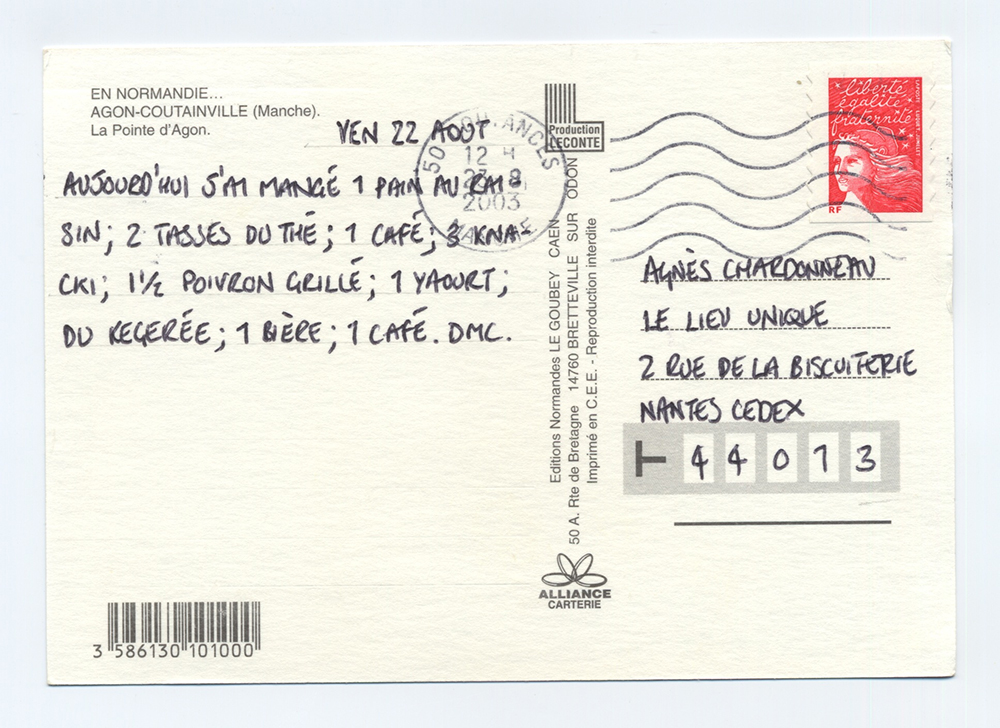 EN NORMANDIE...
AGON-COUTAINVILLE (Manche).
La Pointe d'Agon.
VEN 22 AOUT
AUJOURD'HUI J'AI MANGÉ 1 PAIN AU RAI-
SIN; 2 TASSES DU THÉ; 1 CAFÉ; 3 KNA-
CKI; 1½ POIVRON GRILLÉ; 1 YAOURT;
DU KEGERÉE; 1 BIÈRE; 1 CAFÉ. DMC.
50 COUTANCES
12 H
2003
MANCHE
Production
LECONTE
Editions Normandes LE GOUBEY CAEN
50 A. Rte de Bretagne 14760 BRETTEVILLE SUR ODON
Imprimé en C.E.E. - Reproduction interdite
ALLIANCE
CARTERIE
liberté
égalité
fraternité
LA POSTE
RF
AGNÈS CHARDONNEAU
LE LIEU UNIQUE
2 RUE DE LA BISCUITERIE
NANTES CEDEX
44013
3 586130 101000